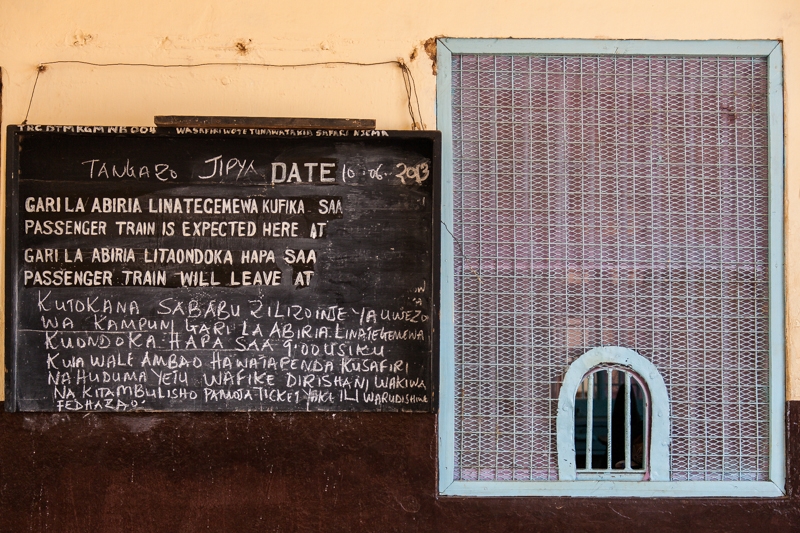 TRC DTM KGM NB 004 WASAFIRI WOTE TUNAWATAKIA SAFARI NJEMA
TANGAZO JIPYA DATE 10-06-2013
GARI LA ABIRIA LINATEGEMEWA KUFIKA SAA
PASSENGER TRAIN IS EXPECTED HERE AT
GARI LA ABIRIA LITAONDOKA HAPA SAA
PASSENGER TRAIN WILL LEAVE AT
KUTOKANA SABABU ZILIZO NJE YA UWEZO
WA KAMPUNI GARI LA ABIRIA LINATEGEMEWA
KUONDOKA HAPA SAA 9:00 USIKU
KWA WALE AMBAO HAWATAPENDA KUSAFIRI
NA HUDUMA YETU WAFIKE DIRISHANI WAKIWA
NA KITAMBULISHO PAMOJA TICKET YAKE ILI WARUDISHIWE
FEDHA ZAO.